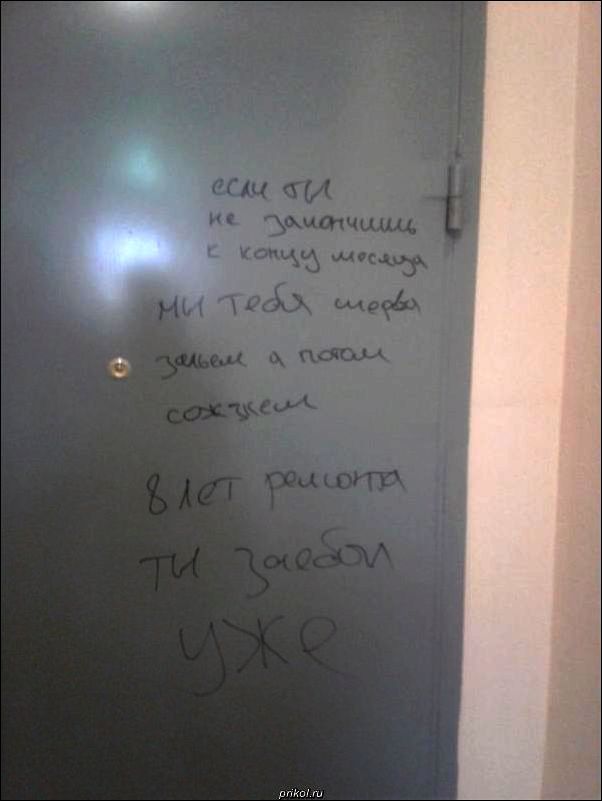 если ты
не закончишь
к концу месяца
мы тебя шерва
зальем а потом
сожжем
8 лет ремонта
ты заебал
уже
prikol.ru